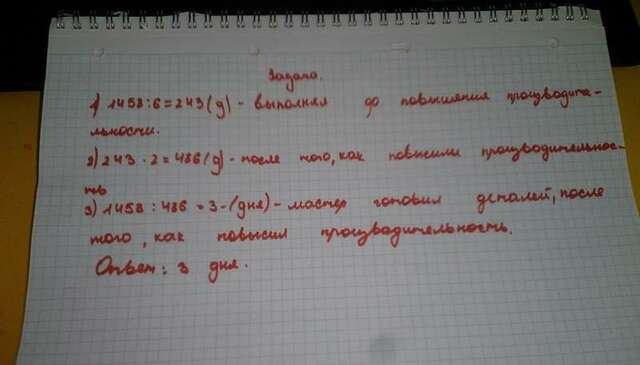 Задача.
1) 1458:6=243(д)- выполнял до повышения производите-
льности.
2) 243 · 2=486(д)- после того, как повысили производительнос-
ть
3) 1458 : 486 =3-(дня)- мастер готовил деталей, после
того, как повысил производительность.
Ответ: 3 дня.